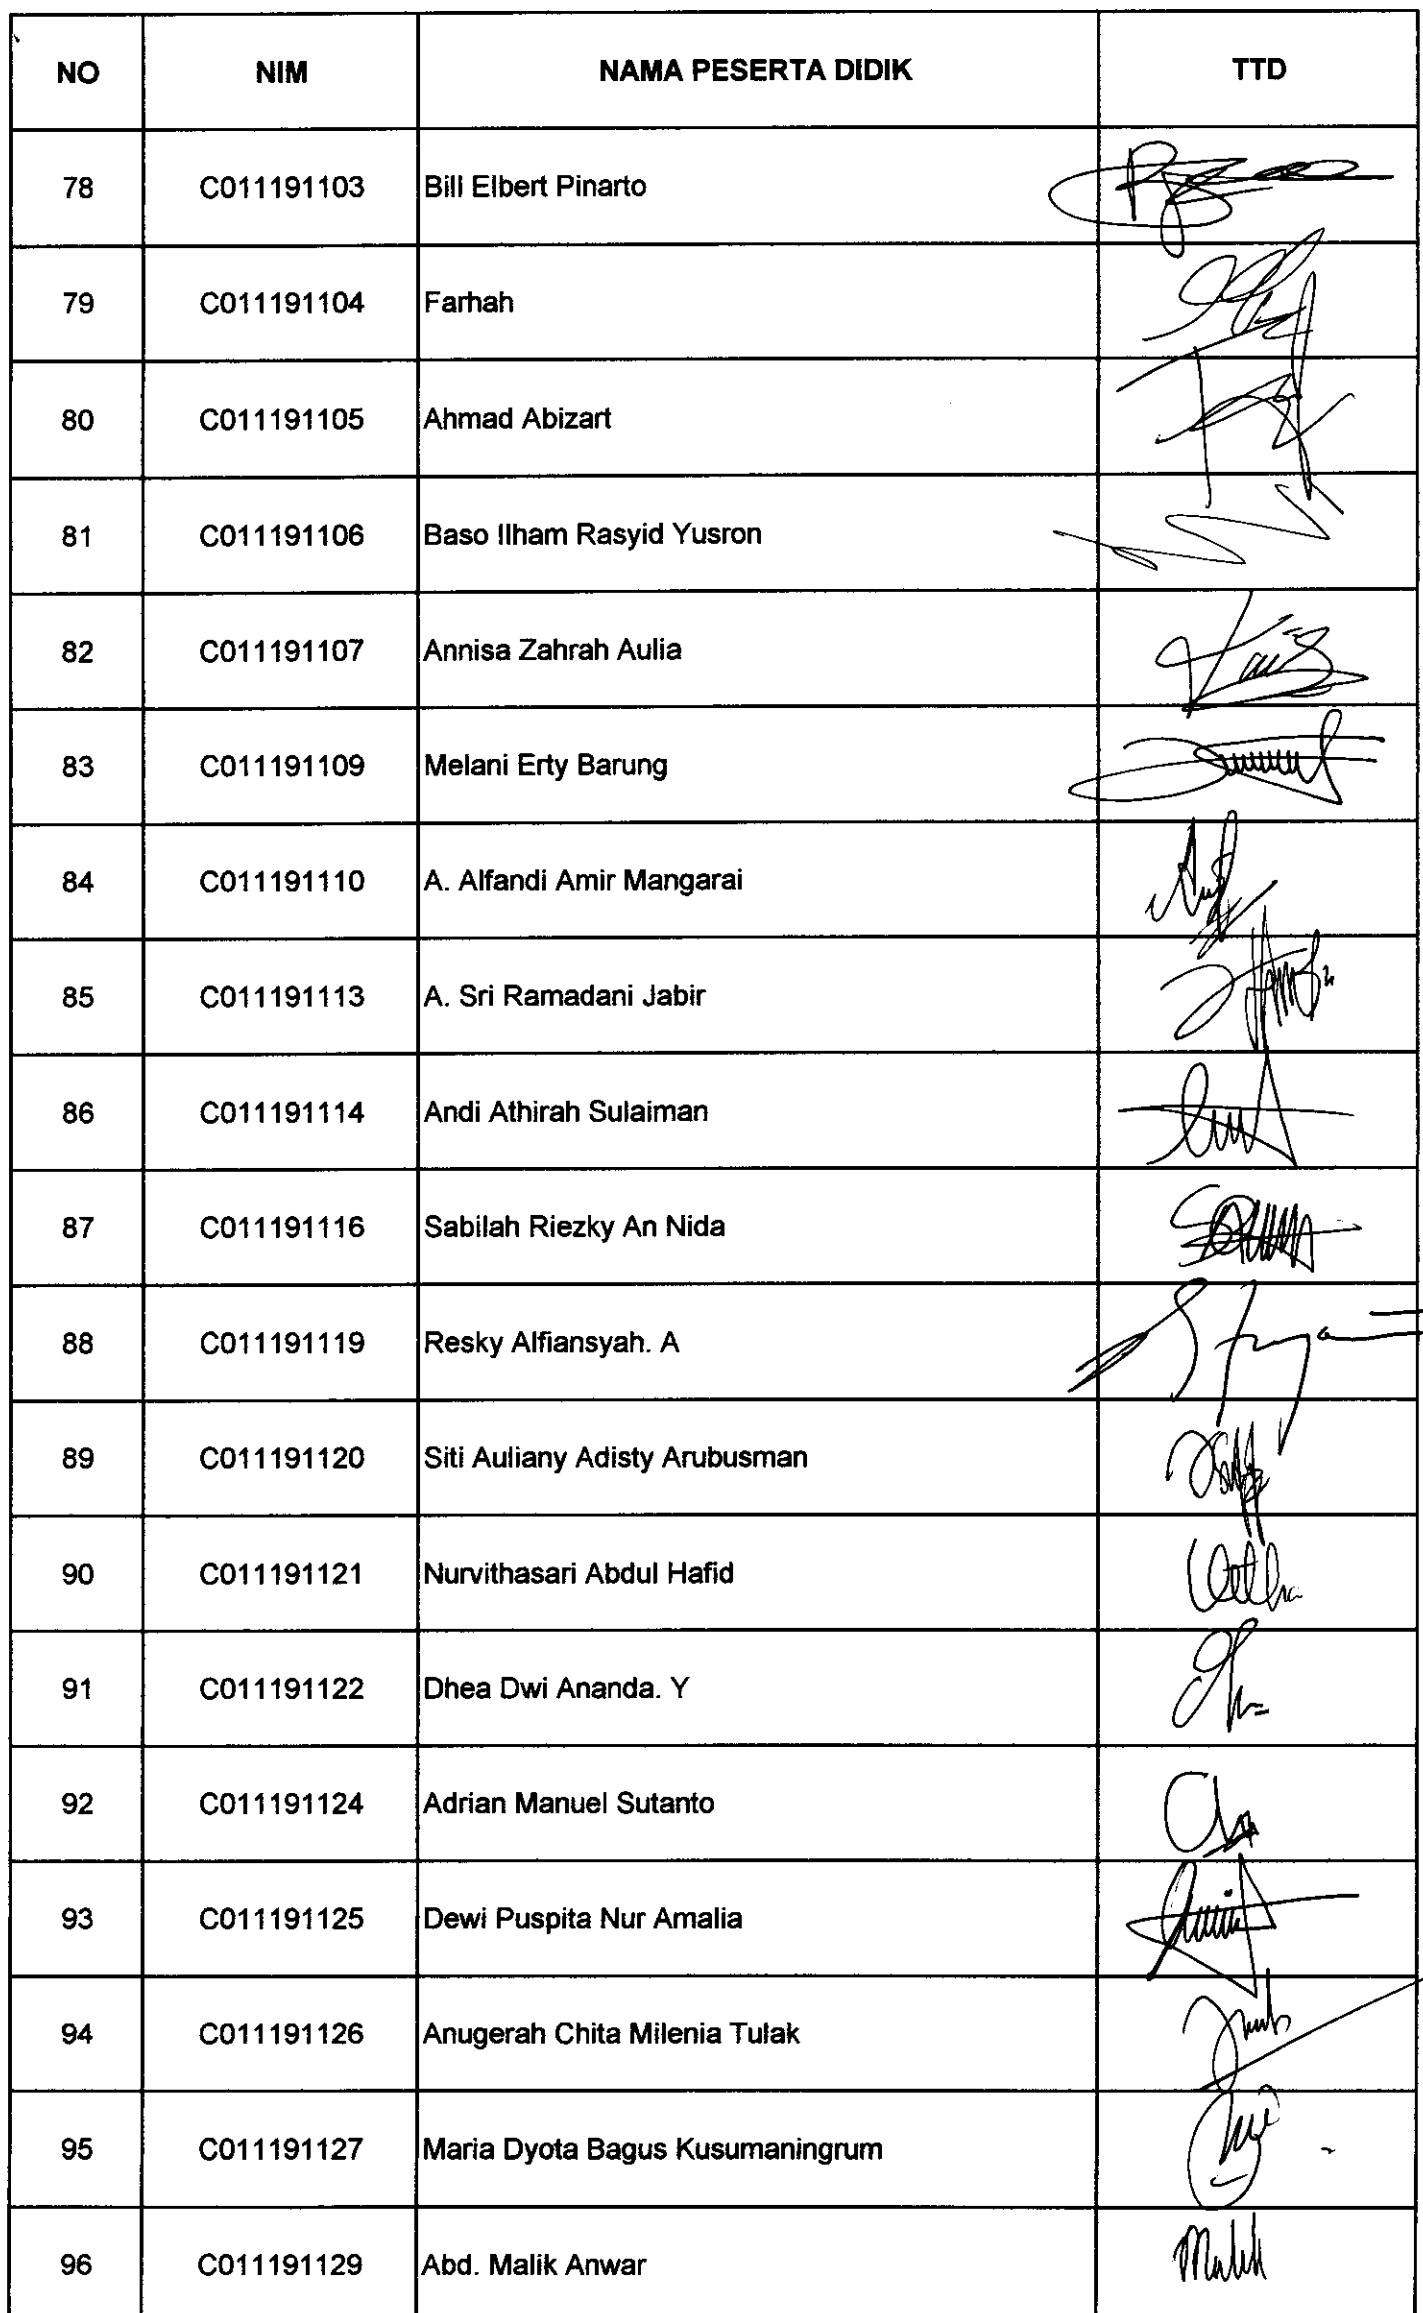 NO NIM NAMA PESERTA DIDIK TTD
78 C011191103 Bill Elbert Pinarto
79 C011191104 Farhah
80 C011191105 Ahmad Abizart
81 C011191106 Baso Ilham Rasyid Yusron
82 C011191107 Annisa Zahrah Aulia
83 C011191109 Melani Erty Barung
84 C011191110 A. Alfandi Amir Mangarai
85 C011191113 A. Sri Ramadani Jabir
86 C011191114 Andi Athirah Sulaiman
87 C011191116 Sabilah Riezky An Nida
88 C011191119 Resky Alfiansyah. A
89 C011191120 Siti Auliany Adisty Arubusman
90 C011191121 Nurvithasari Abdul Hafid
91 C011191122 Dhea Dwi Ananda. Y
92 C011191124 Adrian Manuel Sutanto
93 C011191125 Dewi Puspita Nur Amalia
94 C011191126 Anugerah Chita Milenia Tulak
95 C011191127 Maria Dyota Bagus Kusumaningrum
96 C011191129 Abd. Malik Anwar Malik